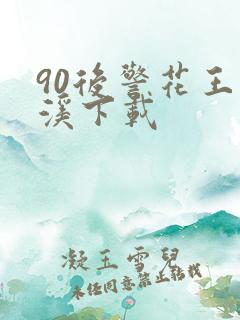 90後警花王
溪下載
凝玉雪兒
未經同意禁止轉載